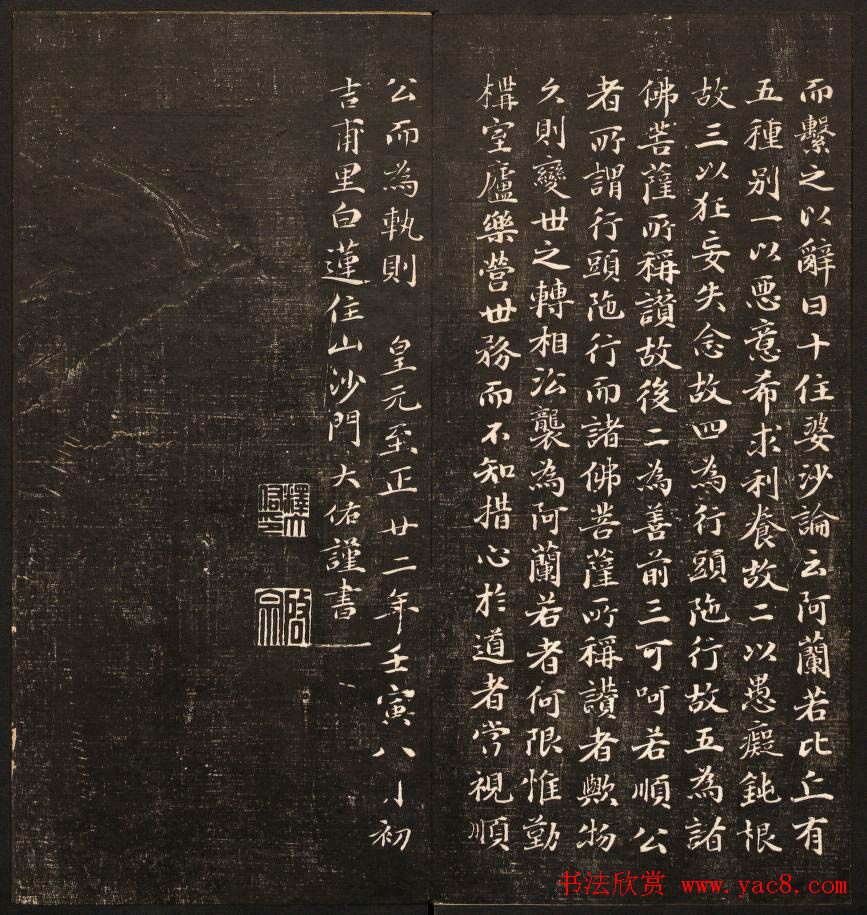 而繫之以辭曰十住婆沙論云阿蘭若比丘有
五種别一以惡意希求利養故二以愚癡鈍根
故三以狂妄失念故四為行頭陁行故五為諸
佛菩薩所稱讃故後二為善前三可呵若順公
者所謂行頭陁行而諸佛菩薩所稱讃者歟物
久則變世之轉相沿襲為阿蘭若者何限惟勤
構室廬樂營世務而不知措心於道者當視順
公而為執則 皇元至正廿二年壬寅八月初
吉甫里白蓮住山沙門大佑謹書
书法欣赏 www.yac8.com